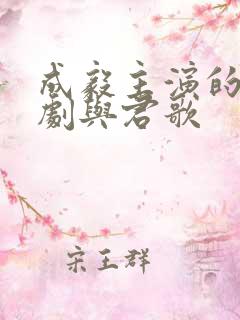 成毅主演的
劇與君歌
宋王群